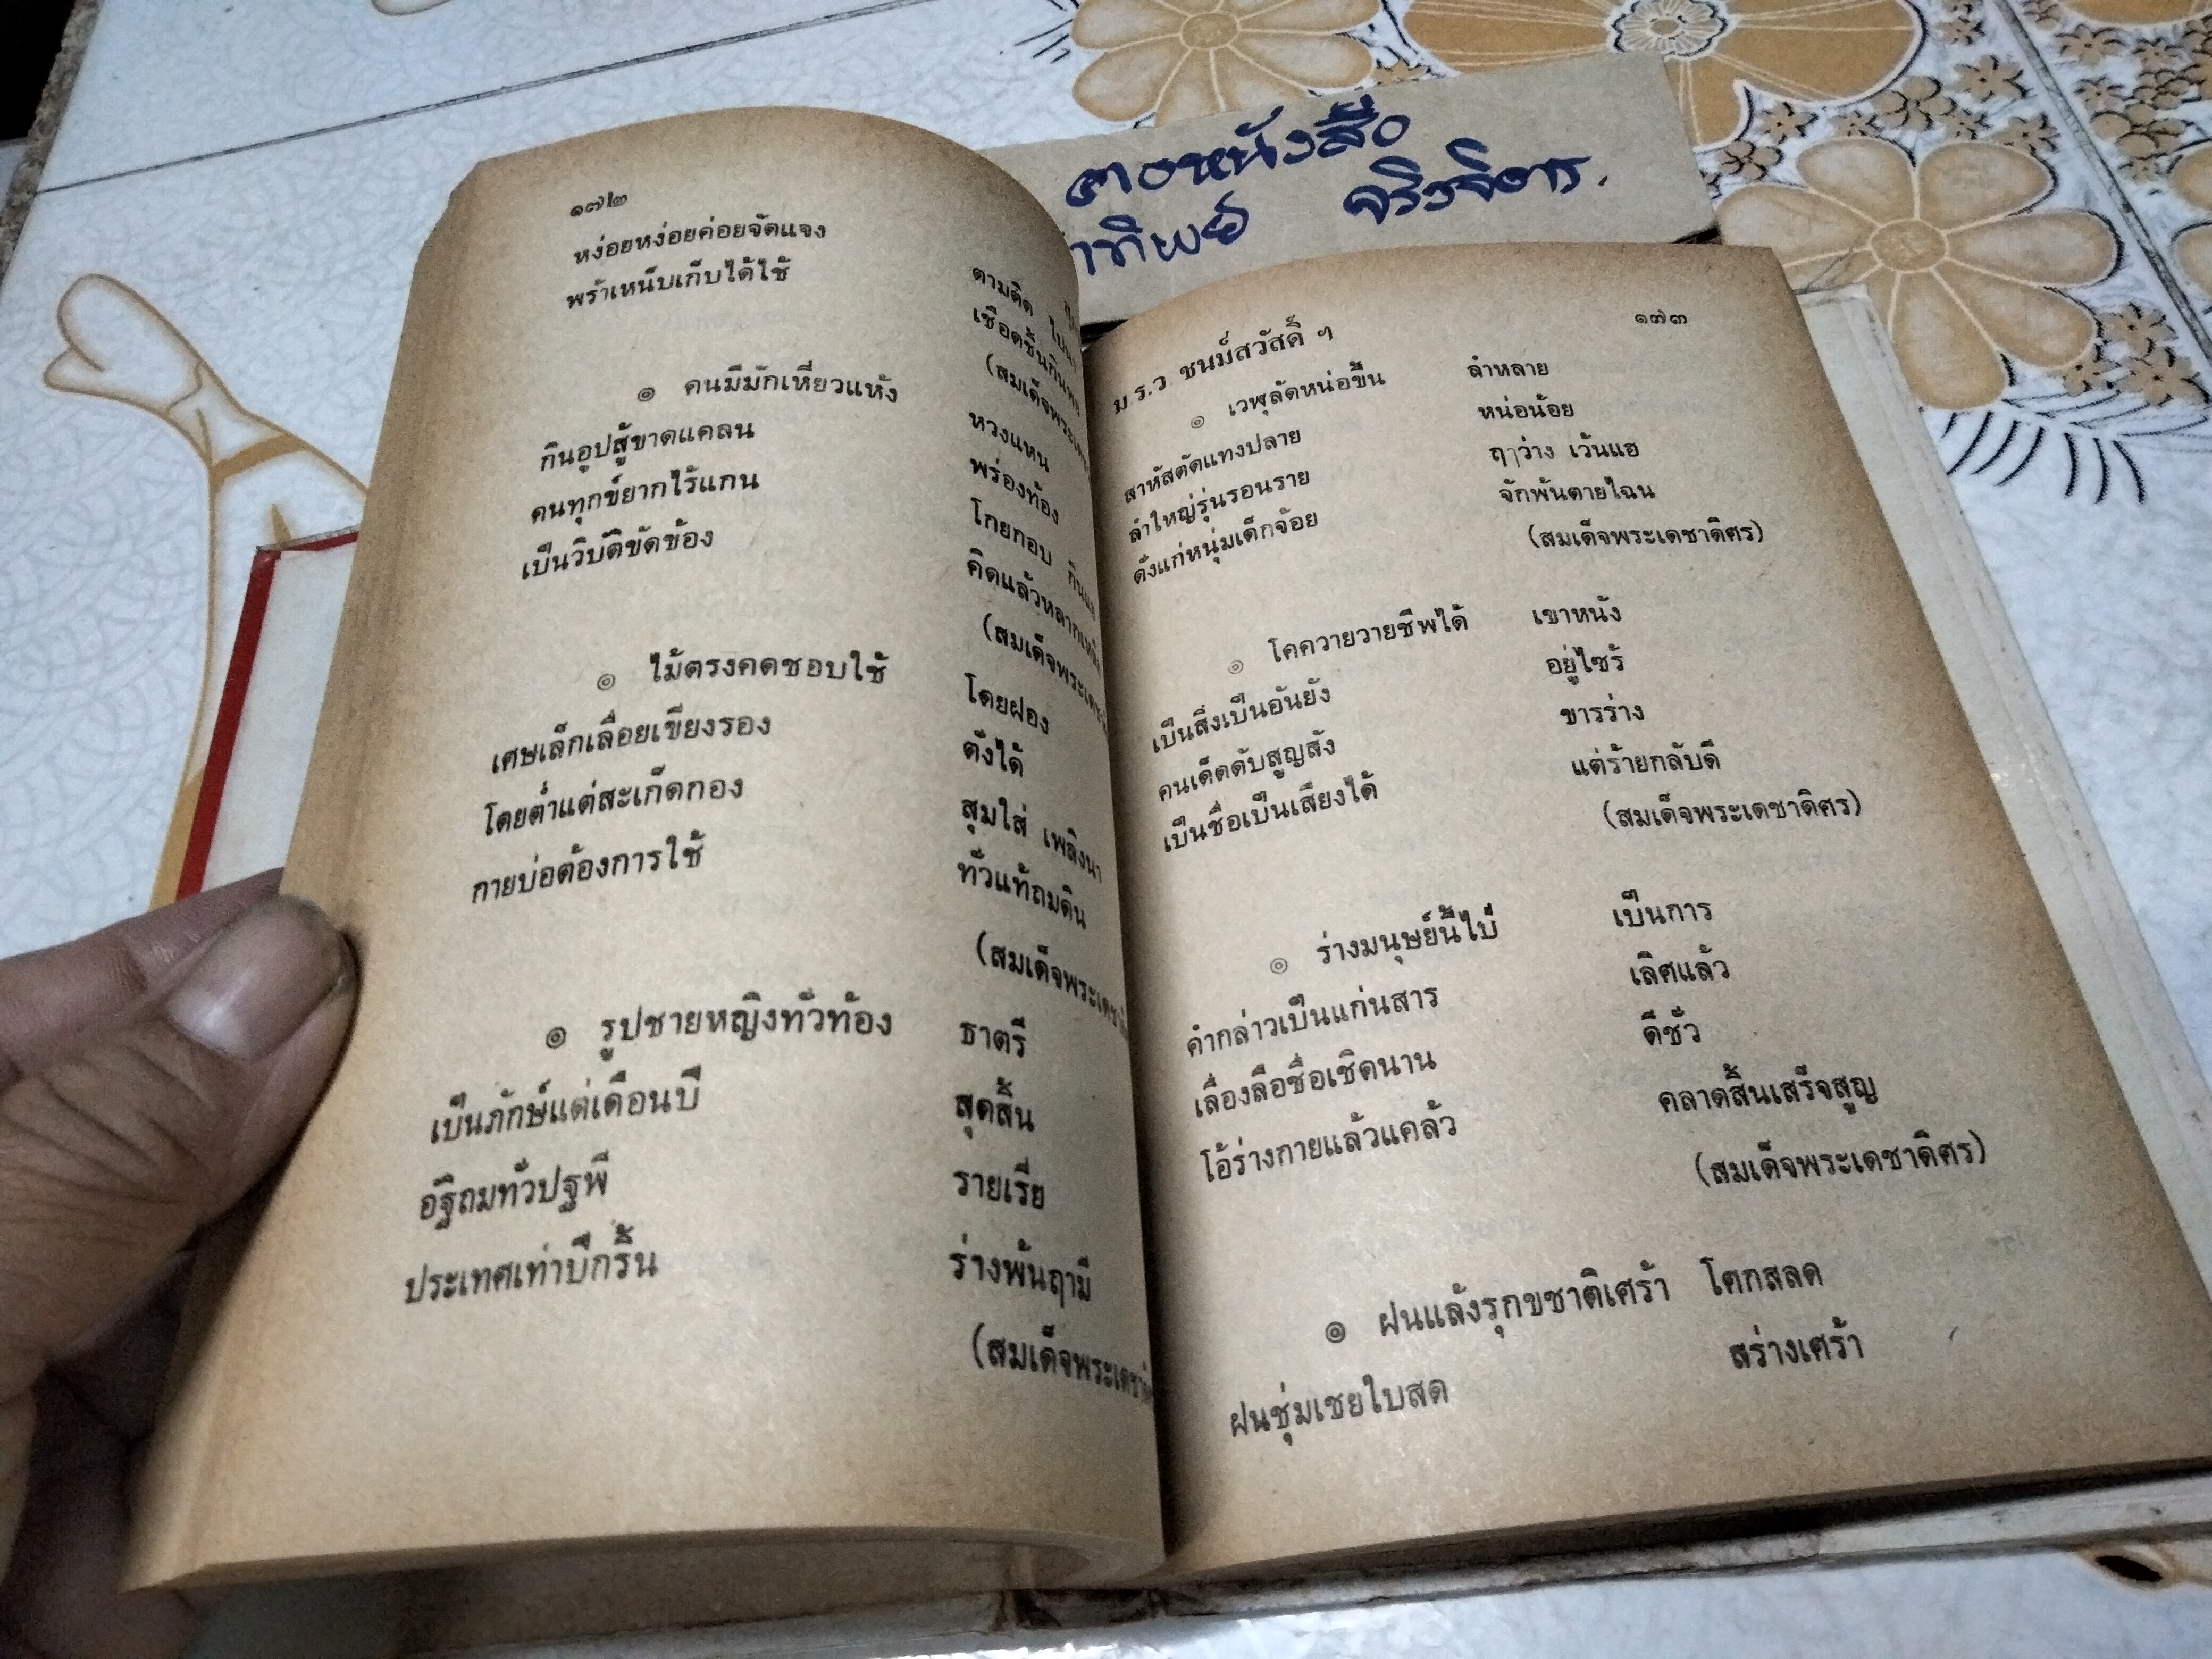 ตองหนังสือ
าทิพย์ จริงจิตร.
๑๗๒
หง่อยหง่อยค่อยจัดแจง ตามติด ไปนา
พร้าเหน็บเก็บได้ใช้ เชือดชิ้นกินพลาง
(สมเด็จพระเดชา
๏ คนมีมักเหี่ยวแห้ง หวงแหน
กินอูปสู้ขาดแคลน พร่องท้อง
คนทุกข์ยากไร้แกน โกยกอบ กินแฮ
เป็นวิบัติขัดข้อง คิดแล้วหลากเหลือ
(สมเด็จพระเดชา
๏ ไม้ตรงคดชอบใช้ โดยฝอง
เศษเล็กเลื่อยเขียงรอง ตั่งได้
โดยต่ำแต่สะเก็ดกอง สุมใส่ เพลิงนา
กายบ่อต้องการใช้ ทั่วแท้ถมดิน
(สมเด็จพระเดชาดิ
๏ รูปชายหญิงทั่วท้อง ธาตรี
เป็นภักษ์แต่เดือนปี สุดสิ้น
อัฐิถมทั่วปฐพี รายเรี่ย
ประเทศเท่าปีกริ้น ร่างพ้นฤามี
(สมเด็จพระเดชาดิ
ม.ร.ว ชนม์สวัสดิ์ ฯ ๑๗๓
๏ เวฬุลัดหน่อขึ้น ลำหลาย
สาหัสตัดแทงปลาย หน่อน้อย
ลำใหญ่รุ่นรอนราย ฤๅว่าง เว้นแฮ
ดั่งแก่หนุ่มเด็กจ้อย จักพ้นตายไฉน
(สมเด็จพระเดชาดิศร)
๏ โคควายวายชีพได้ เขาหนัง
เป็นสิ่งเป็นอันยัง อยู่ไซร้
คนเด็ดดับสูญสัง ขารร่าง
เป็นชื่อเป็นเสียงได้ แต่ร้ายกลับดี
(สมเด็จพระเดชาดิศร)
๏ ร่างมนุษย์นี้ไป่ เป็นการ
คำกล่าวเป็นแก่นสาร เลิศแล้ว
เลื่องลือชื่อเชิดนาน ดีชั่ว
โอ้ร่างกายแล้วแคล้ว คลาดสิ้นเสร็จสูญ
(สมเด็จพระเดชาดิศร)
๏ ฝนแล้งรุกขชาติเศร้า โศกสลด
ฝนชุ่มเชยใบสด สร่างเศร้า